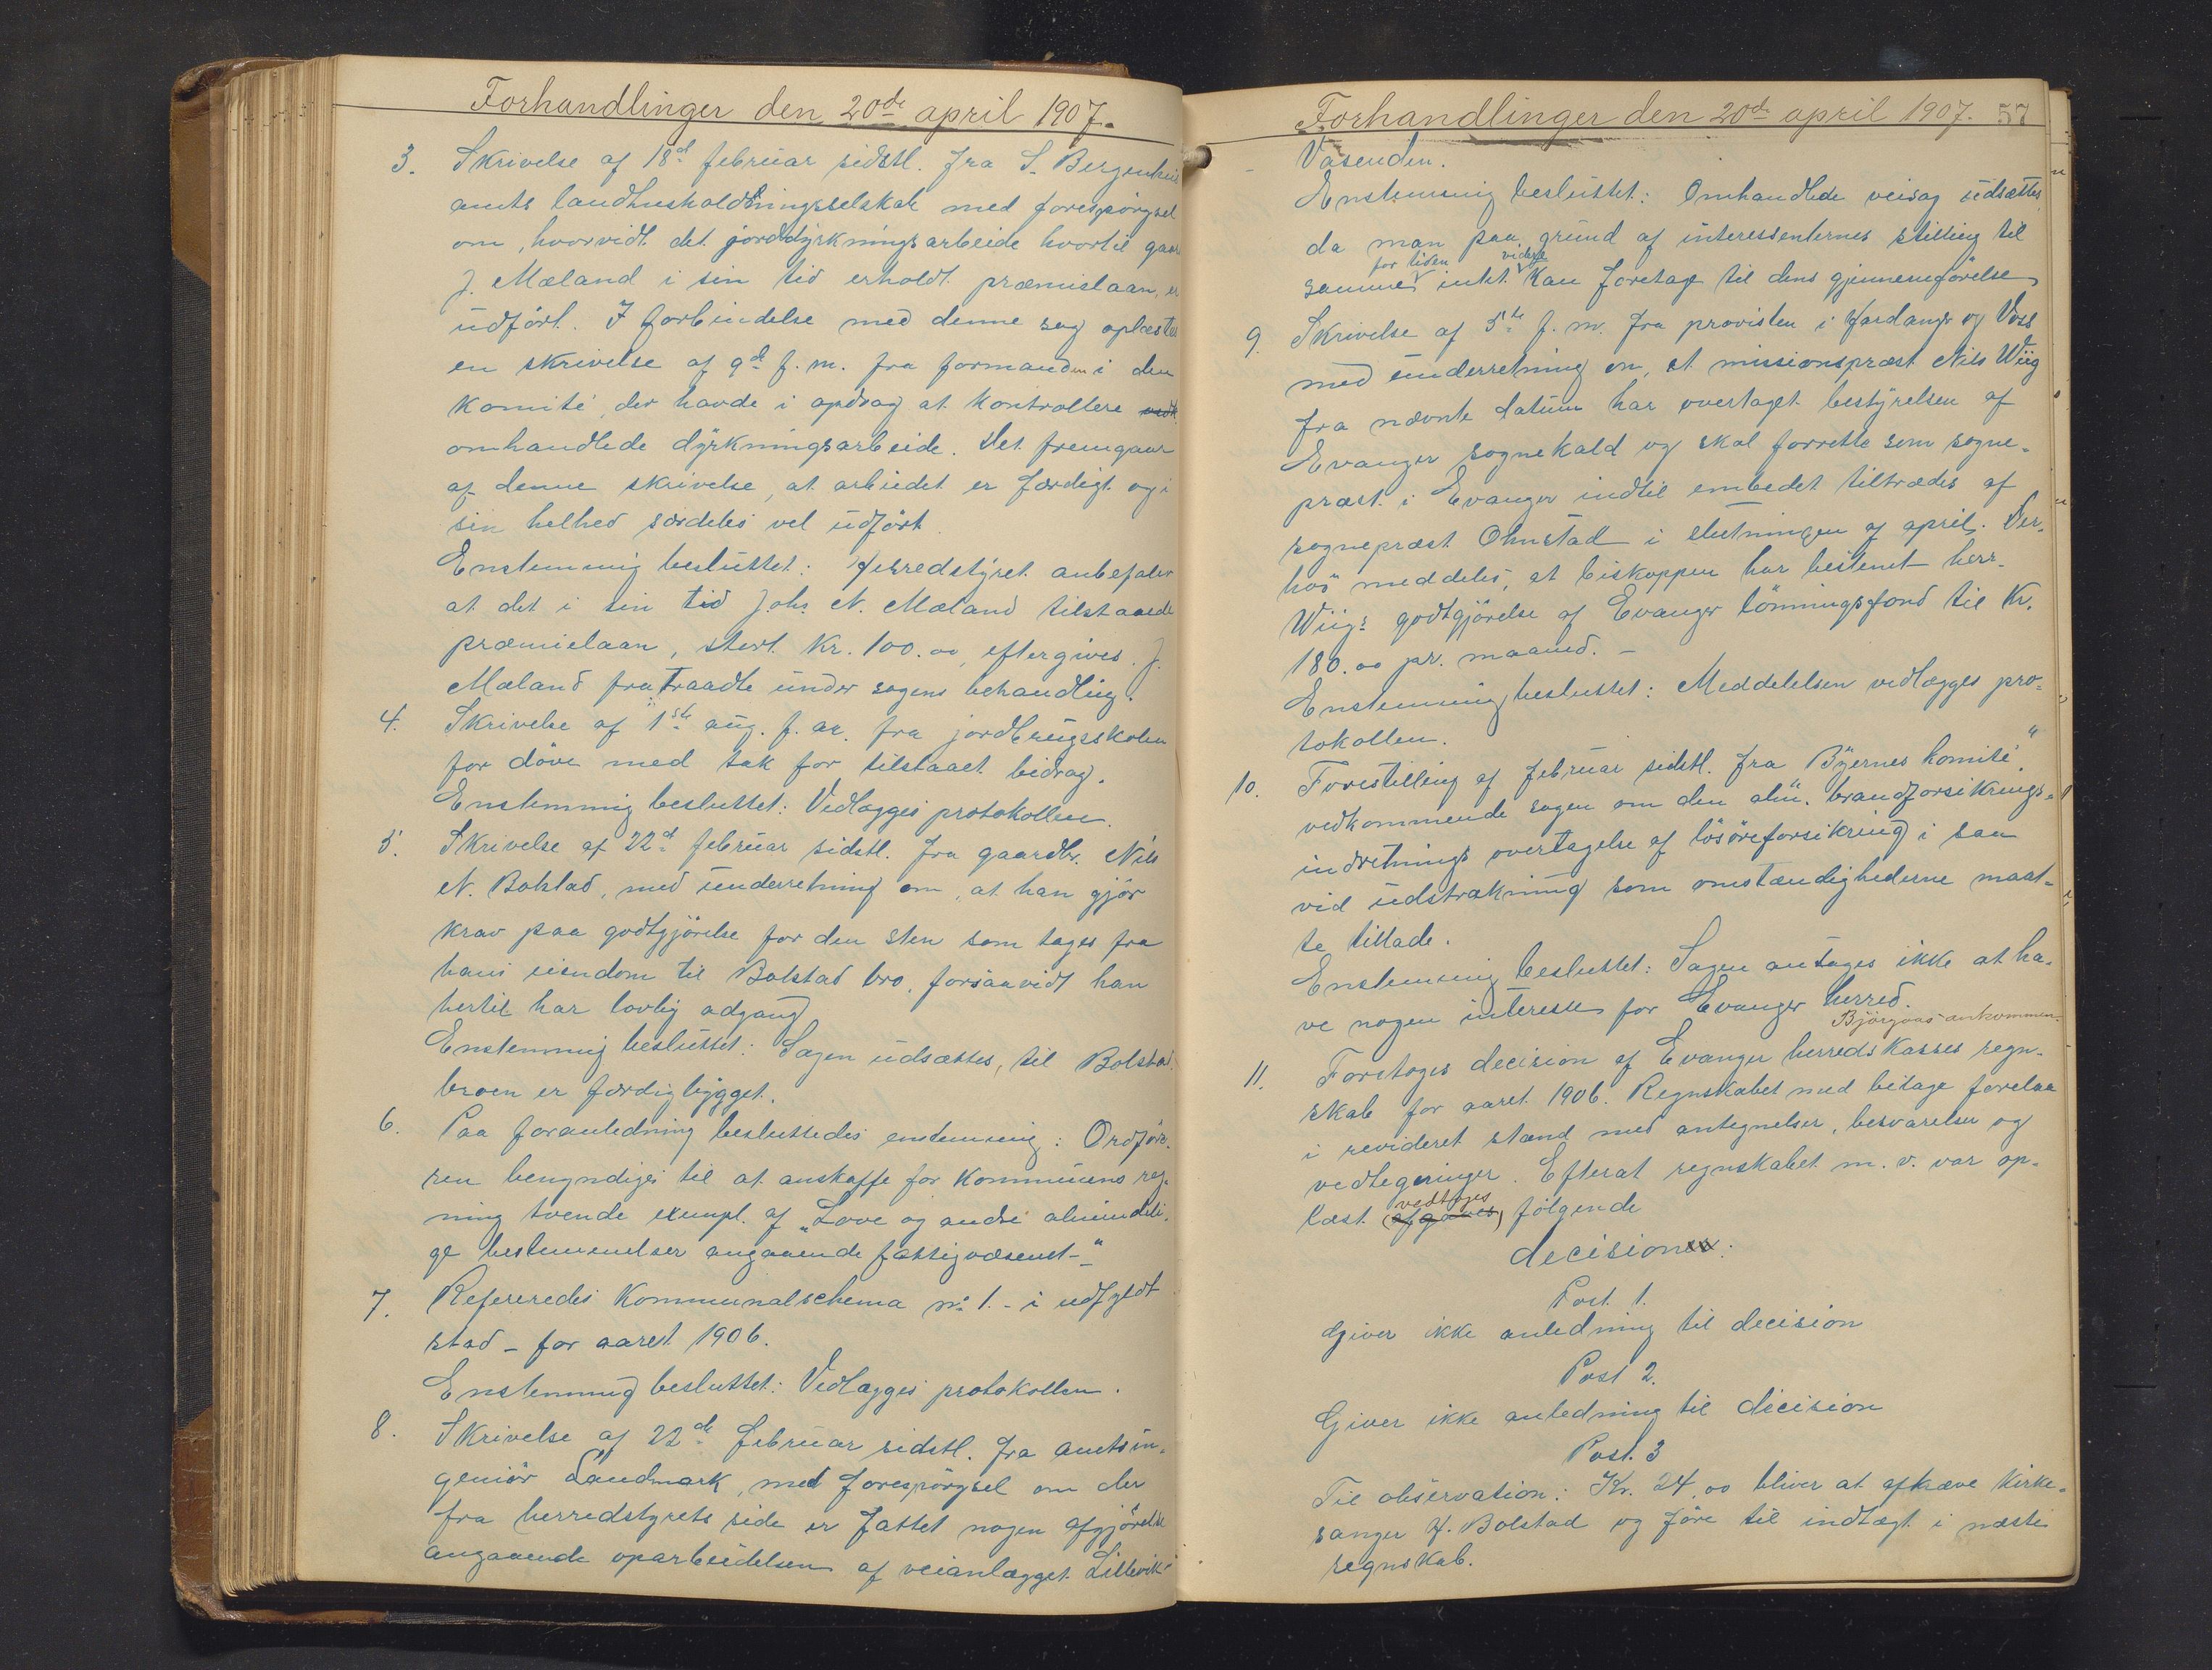 Forhandlinger den 20de april 1907.
3. Skrivelse af 18d februar sidstl. fra S. Bergenhus
amts landhusholdningsselskab med forespörgsel
om, hvorvidt det jorddyrkningsarbeide hvortil gaar
J. Mæland i sin tid erholdt præmielaan, er
udfört. I forbindelse med denne sag oplæstes
en skrivelse af 9d f. m. fra formanden i den
komité, der havde i opdrag at kontrollere
omhandlede dyrkningsarbeide. Det fremgaar
af denne skrivelse, at arbeidet er færdigt og i
sin helhed særdeles vel udfört.
Enstemmig besluttet: Herredstyret anbefaler
at det i sin tid Johs N. Mæland tilstaaede
præmielaan, stort kr. 100.00, eftergives. J.
Mæland fratraadte under sagens behandling.
4. Skrivelse af 1ste aug. f. aar. fra jordbrugsskolen
for döve med tak for tilstaaet bidrag.
Enstemmig besluttet: Vedlægges protokollen.
5. Skrivelse af 22d februar sidstl. fra gaardbr. Nils
N. Bolstad, med underretning om, at han gjör
krav paa godtgjörelse for den sten som tages fra
hans eiendom til Bolstad bro, forsaavidt han
hertil har lovlig adgang
Enstemmig besluttet: Sagen udsættes, til Bolstad
broen er færdigbygget.
6. Paa foranledning besluttedes enstemmig: Ordföre-
ren bemyndiges til at anskaffe for kommunens reg-
ning tvende exempl. af „Love og andre almindeli-
ge bestemmelser angaaende fattigvæsenet-"
7. Refereredes kommunalschema no 1. - i udfyldt
stad - for aaret 1906.
Enstemmig besluttet: Vedlægges protokollen.
8. Skrivelse af 22de februar sidstl. fra amtsin-
geniör Landmark, med forespörgsel om der
fra herredstyrets side er fattet nogen afgjörelse
angaaende oparbeidelsen af veianlægget Lillevik-
Forhandlinger den 20de april 1907. 57
Vasenden.
Enstemmig besluttet: Omhandlede veisag udsættes,
da man paa grund af interessenternes stilling til
for tiden videre
samme intet kan foretage til dens gjennemförelse
9. Skrivelse af 5te f. m. fra provsten i Hardanger og Voss
med underretning om, at missionspræst Nils Wiig
fra nævnte datum har overtaget bestyrelsen af
Evanger sognekald og skal forrette som sogne-
præst i Evanger indtil embedet tiltrædes af
sognepræst Ohnstad i slutningen af april. Der-
hos meddeles, at biskoppen har bestemt herr.
Wiigs godtgjörelse af Evanger lönningsfond til kr.
180.00 pr. maaned. -
Enstemmig besluttet: Meddelelsen vedlægges pro-
tokollen.
10. Forestilling af februar sidstl. fra „Byernes komité"
vedkommende sagen om den alm. brandforsikrings-
indretnings overtagelse af lösöreforsikring i saa
vid udstrækning som omstændighederne maat-
te tillade.
Enstemmig besluttet: Sagen antages ikke at ha-
ve nogen interesse for Evanger herred.
Björgaas ankommen.
11. Foretoges decision af Evanger herredskasses regn-
skab for aaret 1906. Regnskabet med bilage forelaa
i revideret stand med antegnelser, besvarelser og
vedtegninger. Efterat regnskabet m. v. var op-
vedtoges
læst (afgaves) fölgende
decisioner:
Post 1.
Giver ikke anledning til decision
Post 2.
Giver ikke anledning til decision
Post. 3
Til observation: Kr. 24.00 bliver at afkræve kirke-
sanger H. Bolstad og före til indtægt i næste
regnskab.